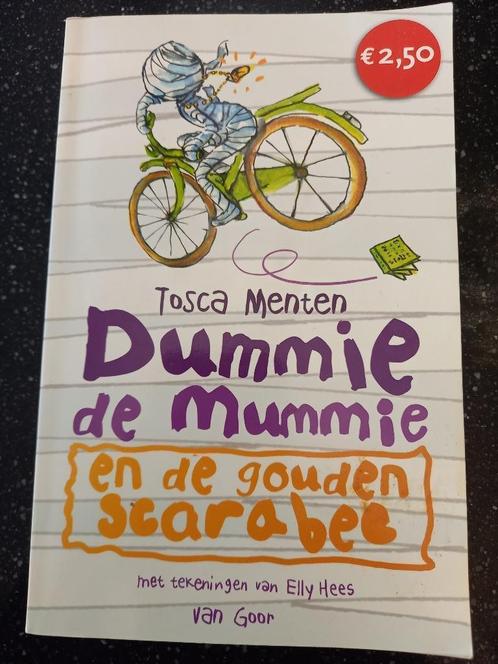 € 2,50
Tosca Menten
Dummie
de mummie
en de gouden
scarabee
met tekeningen van Elly Hees
van Goor